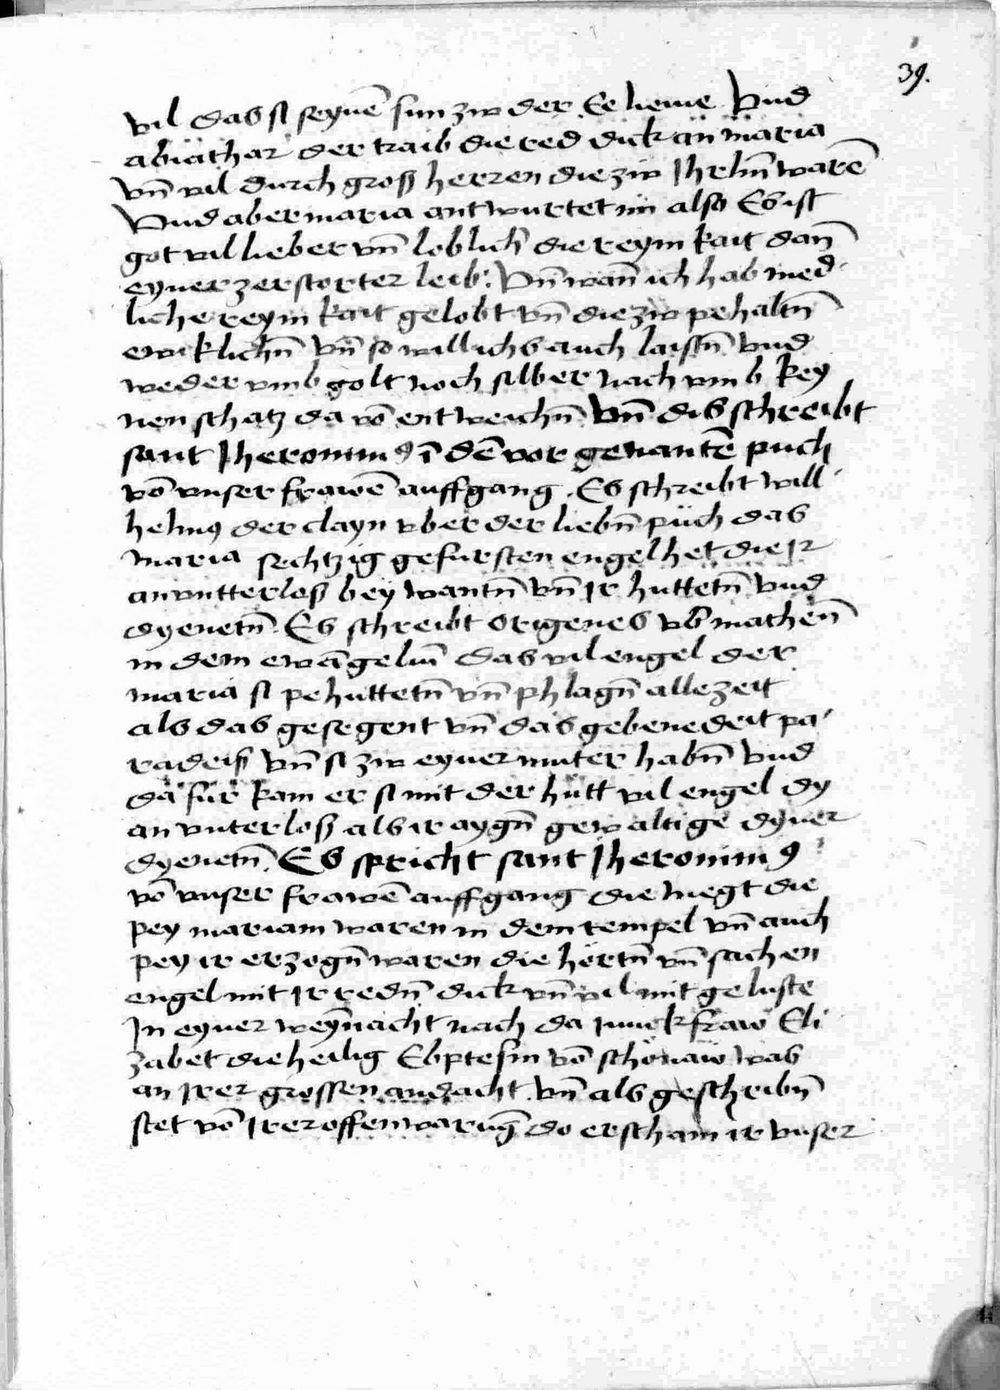 39.
vil das si seynē sun zw der Ee neme Vnd
abiathar der traib die red dick an maria
vn̄ vil durch gross herren die zw Jhrlm̄ warē
Vnd aber maria antwurtet im also Es ist
got vil lieber vn̄ loblich die reynikait dan̄
eyner zerstorter leib. Vn̄ wan̄ ich hab med
liche reynikait gelobt vn̄ die zw pehaltn̄
ewiklichn̄ vn̄ so will ichs auch laistn̄ vnd
weder vmb golt noch silber nach vmb key
nen schatz da vō entweichn̄ Vn̄ dis schreibt
sant Jheronimꝰ ī dē vor genantē puch
vō vnser frawē auffgang. Es schreibt will
helmꝰ der clayn vber der liebn̄ püch das
maria sechtzig gefursten engel het die Jr
an vntterloss bey wantn̄ vn̄ ir huttetn̄ vnd
dyenetn̄ Es schreibt Origenes vb̄ matheū
in dem ewāgeliū das vil engel der
maria si pehuttetn̄ vn̄ phlagn̄ allezeit
als das gesegent vn̄ das gebenedeit pa
radeiss vn̄ si zw eyner muter habn̄ vnd
dafür kam er si mit der hütt vil engel dy
an vnterloss als ir aygn̄ gewaltige dyner
dyenetn̄. Es spricht sant Jheronimꝰ
vō vnser frawē auffgang die megt die
pey mariam waren in dem tempel vn̄ auch
pey ir erzogn̄ waren die hörtn̄ vn̄ sachen
engel mit Jr redn̄ dick vn̄ vil mit geluste
In eyner weyn̄acht nach da iunckfraw Eli
zabet die heilig Ebptesin vō schönaw was
an Jrer grossen andacht vn̄ als geschribn̄
stet vō Jrer offenwarūg do erscham ir vnser